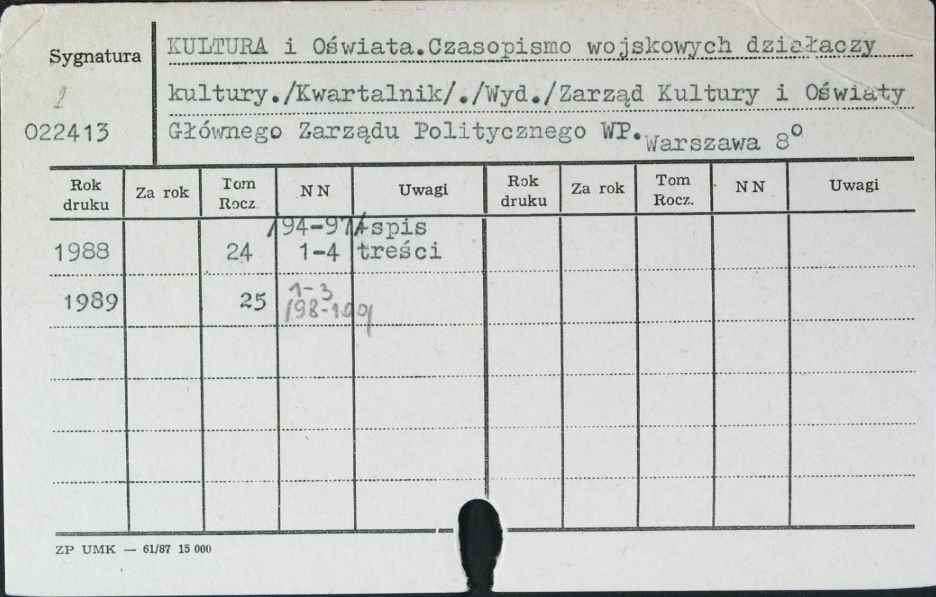 Sygnatura
2
022413
KULTURA i Oświata.Czasopismo wojskowych działaczy
kultury./Kwartalnik/./Wyd./Zarząd Kultury i Oświaty
Głównego Zarządu Politycznego WP.Warszawa 8°
Rok druku Za rok Tom Rocz. N N Uwagi Rok druku Za rok Tom Rocz. N N Uwagi
/94-97/+spis
1988 24 1-4 treści
1989 25 1-3
/98-100/
ZP UMK — 61/87 15 000